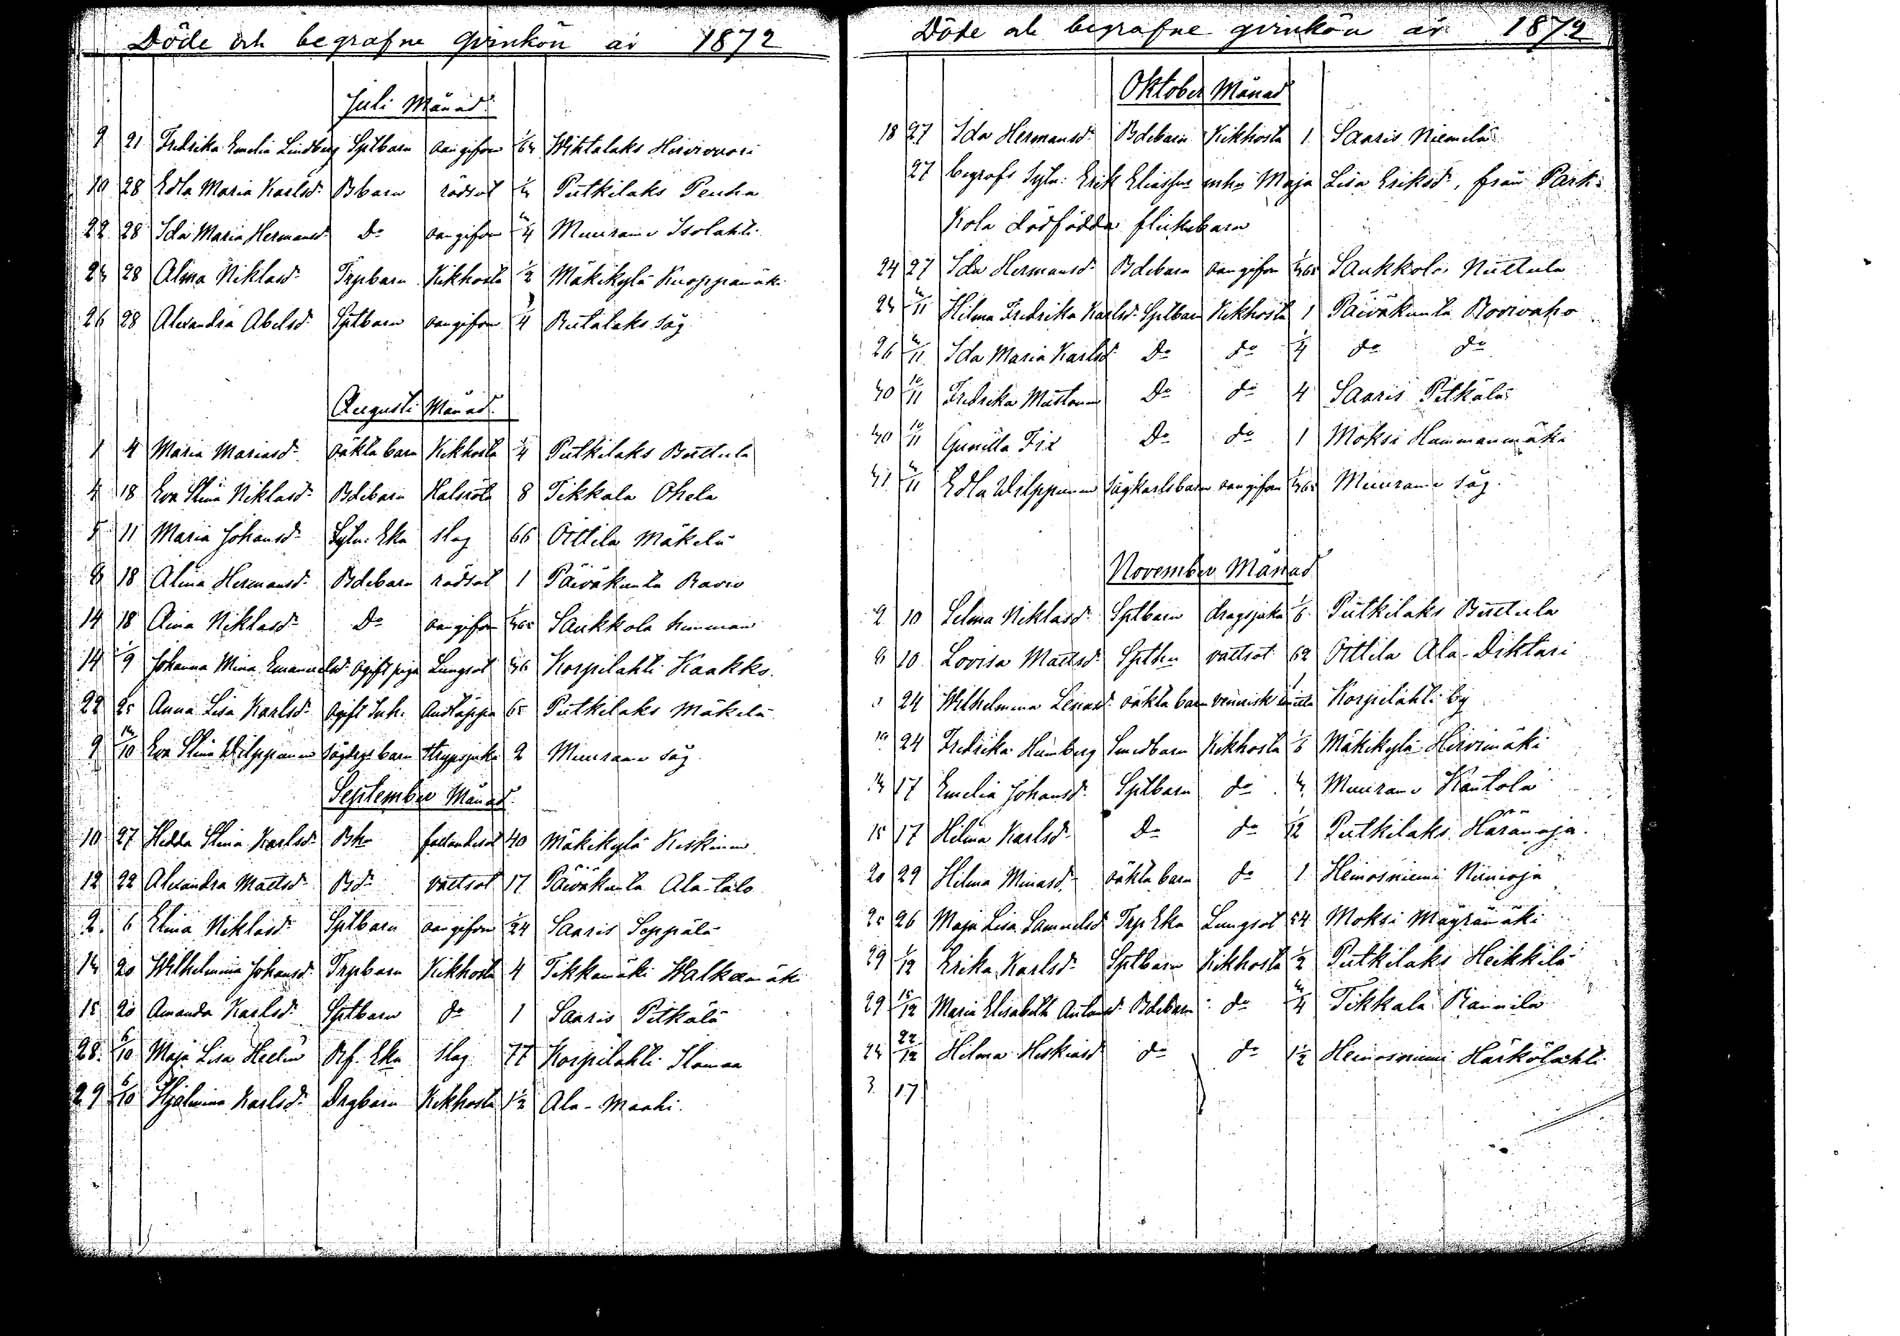 Döde och begrafne qvinkön år 1872
Juli Månad
9 21 Fredrika Emelia Lindberg Sptbarn oangifven Wihtalaks Hirvivuori
10 28 Edla Maria Karlsd. Bbarn rödsot Putkilaks Penha
22 28 Ida Maria Hermansd. Do oangifven 3/4 Muurame Isolahti
28 Alma Niklasd. Trpbarn Kikhosta 1/2 Mäkikylä Knoppamäki
26 28 Alexandra Abelsd. Sptbarn oangifven 3/4 Rutalaks såg
Augusti Månad
1 4 Maria Mariasd. oäkta barn Kikhosta 1/4 Putkilaks Buttula
4 18 Eva Stina Niklasd. Bdebarn Halsröta 8 Tikkala Ohela
5 11 Maria Johansd. Sytn. Eka slag 66 Oittila Mäkelä
8 18 Alina Hermansd. Bdebarn rödsot 1 Päiväkunta
14 18 Aina Niklasd. Do oangifven Saukkola
14 1/9 Johanna Mina Emanuelsd. ogift piga Lungsot 36 Korpilahti Kaakko
22 25 Anna Lisa Karlsd. ogift Inh. Andtäppa 65 Putkilaks Mäkelä
9 Eva Stina Wilppunen barn strypsjuka 2 Muurame såg
September Månad
10 27 Hedda Stina Karlsd. Bha fallandesot 40 Mäkikylä Keskinen
12 22 Alexandra Mattsd. Bd. vattsot 17 Päiväkunta Ala-talo
2 6 Elina Niklasd. Sptbarn oangifven 1/24 Saaris Seppälä
20 Wilhelmina Johansd. Trpbarn Kikhosta 4 Tikkamäki Walkeamäki
15 20 Amanda Karlsd. Sptbarn do 1 Saaris Pitkälä
28 6/10 Maja Lisa Heelin Rf. Eka slag 77 Korpilahti Ilomaa
29 6/10 Hjelmina Karlsd. Drgbarn Kikhosta 1 1/2 Ala-Maahi
Döde och begrafne qvinkön år 1872
Oktober Månad
18 27 Ida Hermansd. Bdebarn Kikhosta 1 Saaris Niemelä
27 begrofs Sytn. Erik Eliasson Maja Lisa Eriksd., från Park-
kola dödfödda flickebarn
24 27 Ida Hermansd. Bdebarn oangifven Saukkola Nuttula
3/11 Hilma Fredrika Karlsd. Sptbarn Kikhosta 1 Päiväkunta Rovivaho
26 3/11 Ida Maria Karlsd. Do do 1/4 do do
30 10/11 Fredrika Do do 4 Saaris Pitkälä
30 10/11 Gunilla Fix Do do 1 Moksi Hammanmäki
31 3/11 Edla Wilppunen Sågkarlsbarn oangifven Muurame såg
November Månad
2 10 Selma Niklasd. Sptbarn dragsjuka 1/6 Putkilaks Buttula
8 10 Lovisa Mattsd. vattsot 62 Oittila Ala-Diktari
24 Wilhelmina oäkta barn venerisk smitta Korpilahti by
10 24 Fredrika Humberg Smedbarn Kikhosta 1/6 Mäkikylä Hirvimäki
17 Emelia Johansd. Sptbarn do Muurame Kantola
15 17 Hilma Karlsd. Do do 1/12 Putkilaks Häränoja
20 29 Hilma Minasd. oäkta barn do 1 Heinosniemi Niinioja
25 26 Maja Lisa Samuelsd. Trp. Eka Lungsot 54 Moksi Mäyrämäki
29 1/12 Erika Karlsd. Sptbarn Kikhosta 1/2 Putkilaks Heikkilä
29 15/12 Maria Elisabeth Antonsd. Bdebarn do 3/4 Tikkala Rannila
22/12 Hilma Heskiasd. do do 1 1/2 Heinosniemi Härkölahti
3 17